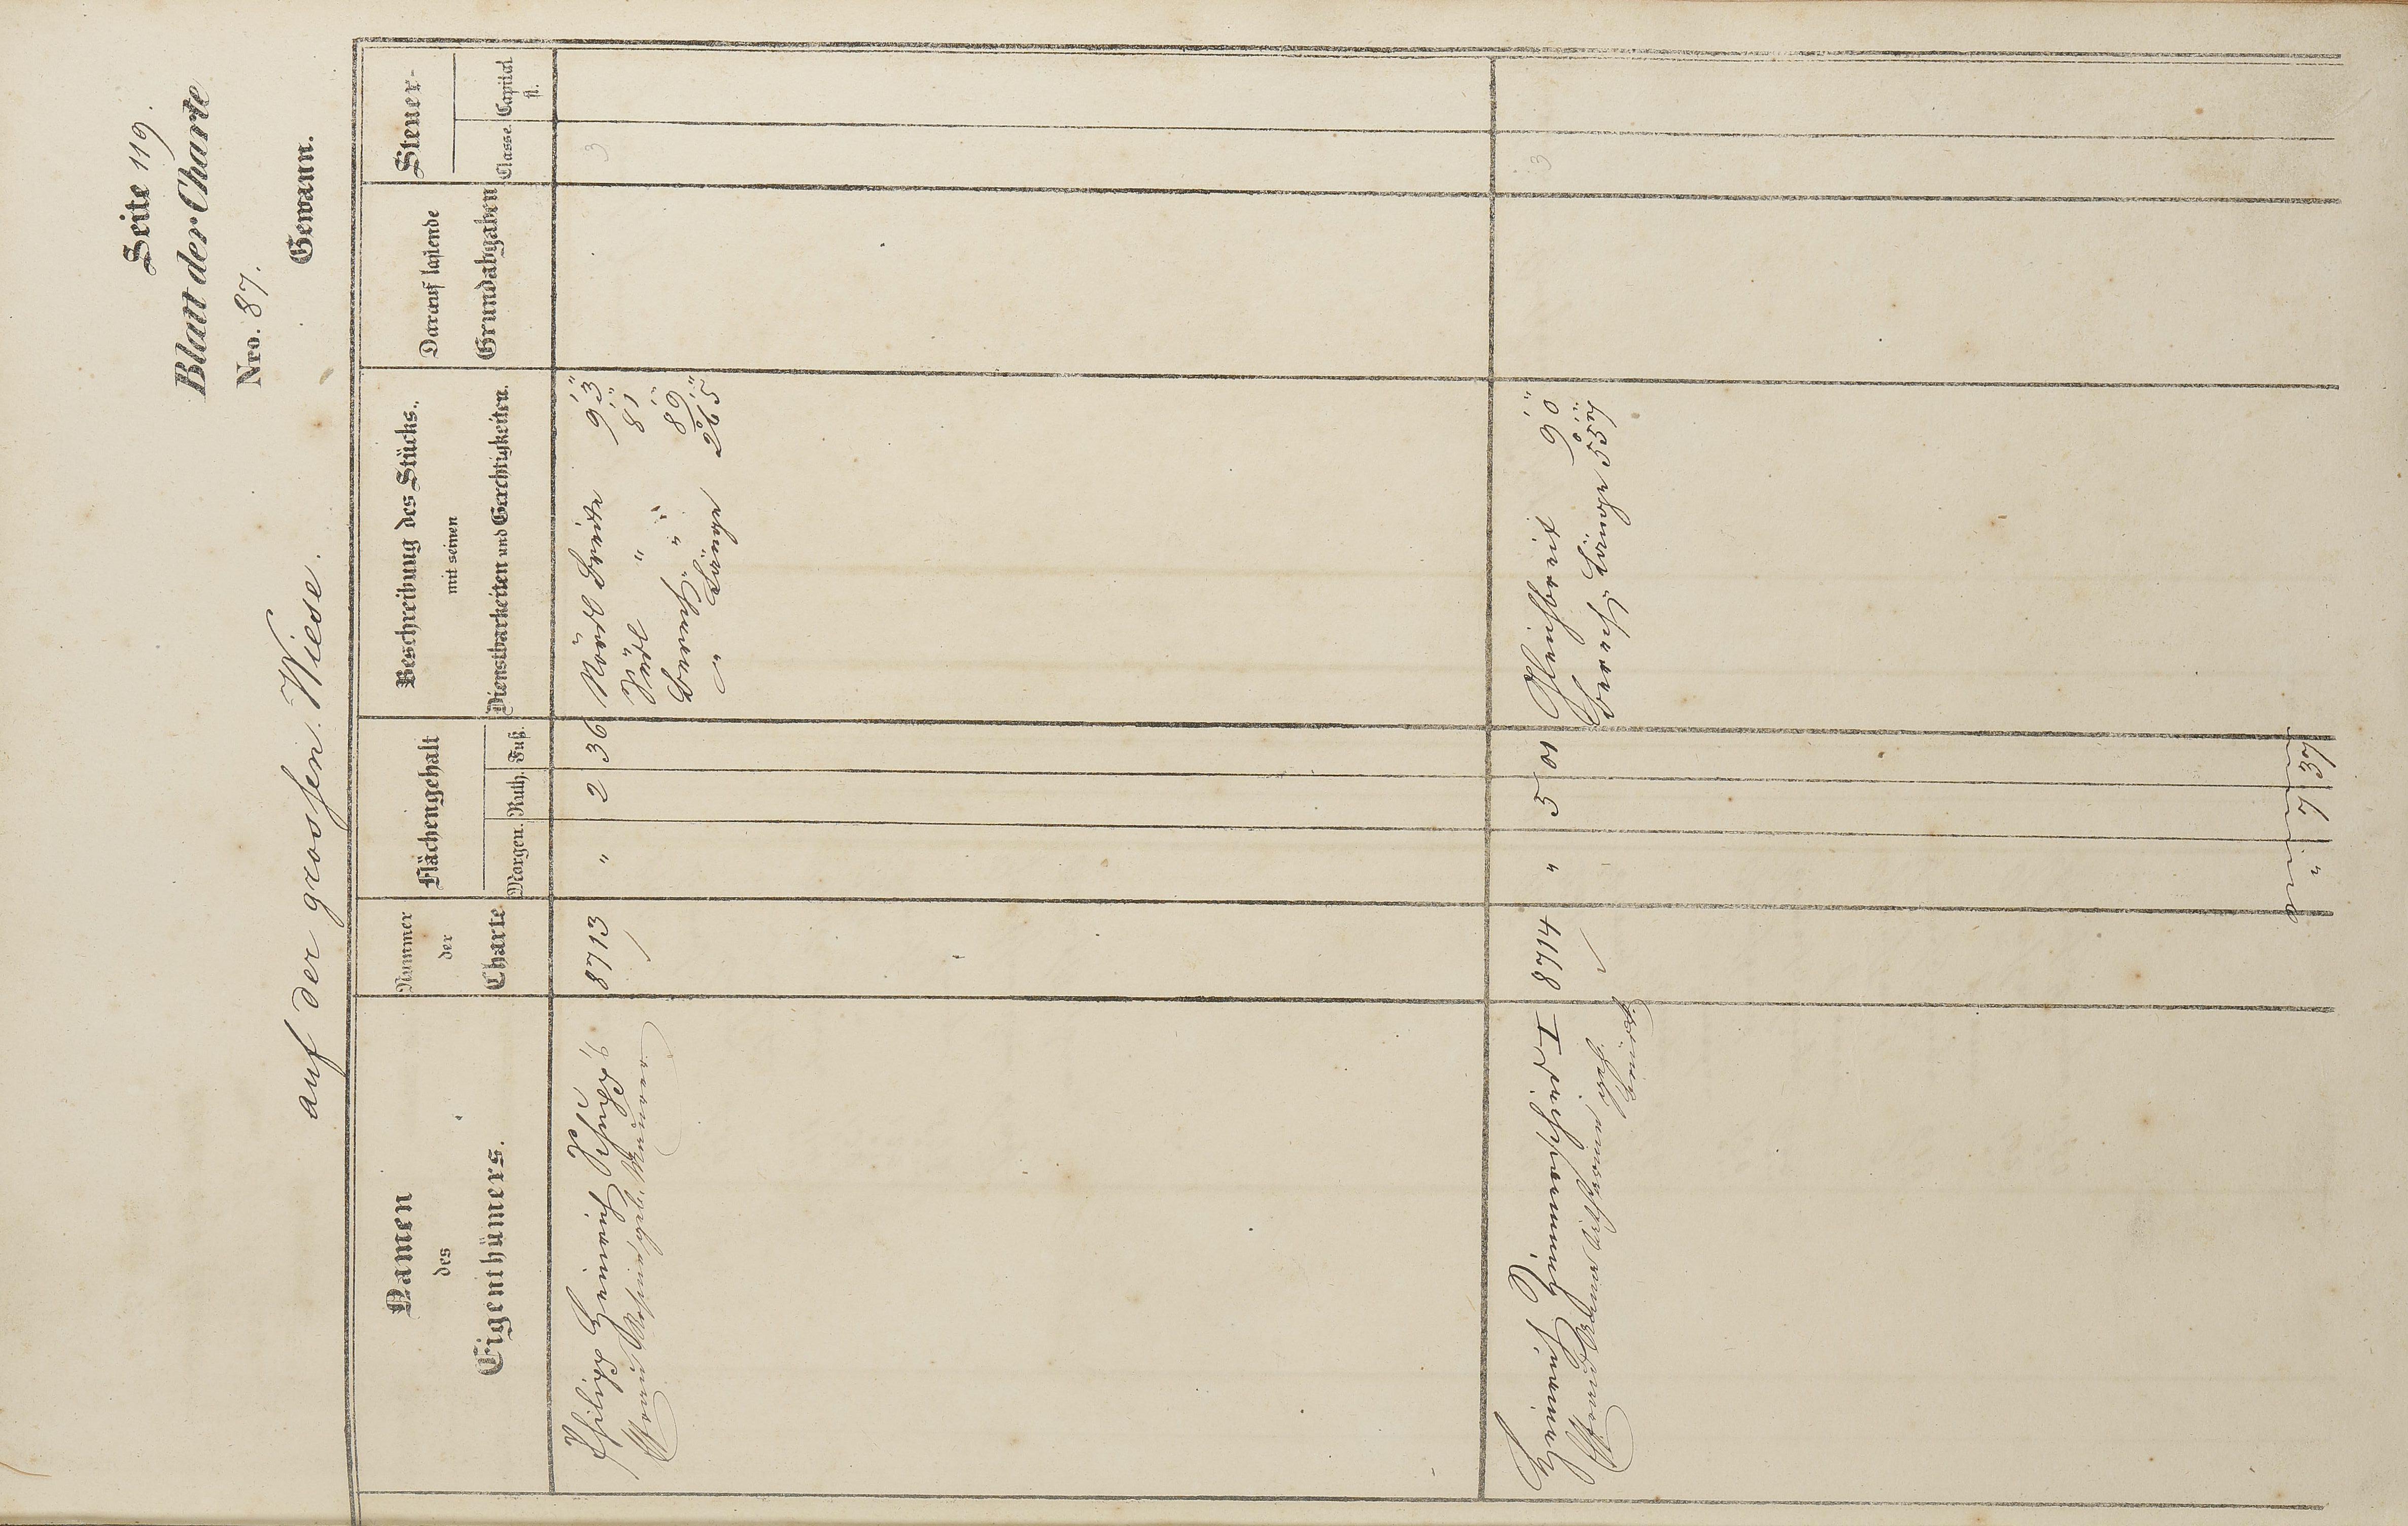 Seite 119.
Blatt der Charte
Nro. 87.
auf der grossen Wiese.
Gewann.
Namen
des
Eigenthümers.
Nummer
der
Charte
Flächengehalt
Morgen. Ruth. Fuß.
Beschreibung des Stücks,
mit seinen
Dienstbarkeiten und Gerechtigkeiten.
Darauf lastende
Grundabgaben
Steuer-
Classe. Capital
fl.
Philipp Heinrich Schupp 8713 " 2 36 Nördl Breite 9' 3" 3
Frau geb. Südl " 8' 1"
" " 8' 9"
" Länge 26° 5'
Heinrich I 8714 " 5 01 Gleichbreit 9' 0" 3
Frau geb. Länge
" 7 37